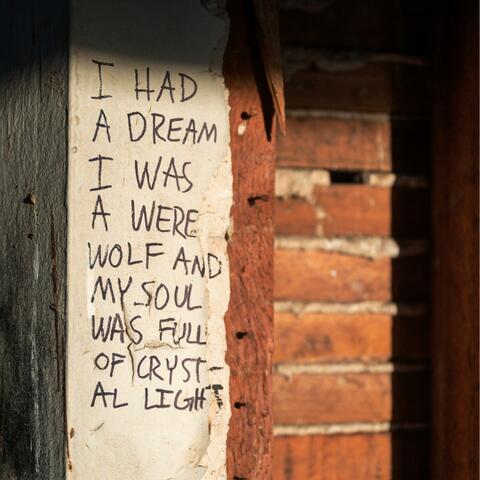 I HAD
A DREAM
I WAS
A WERE
WOLF AND
MY SOUL
WAS FULL
OF CRYST
AL LIGHT